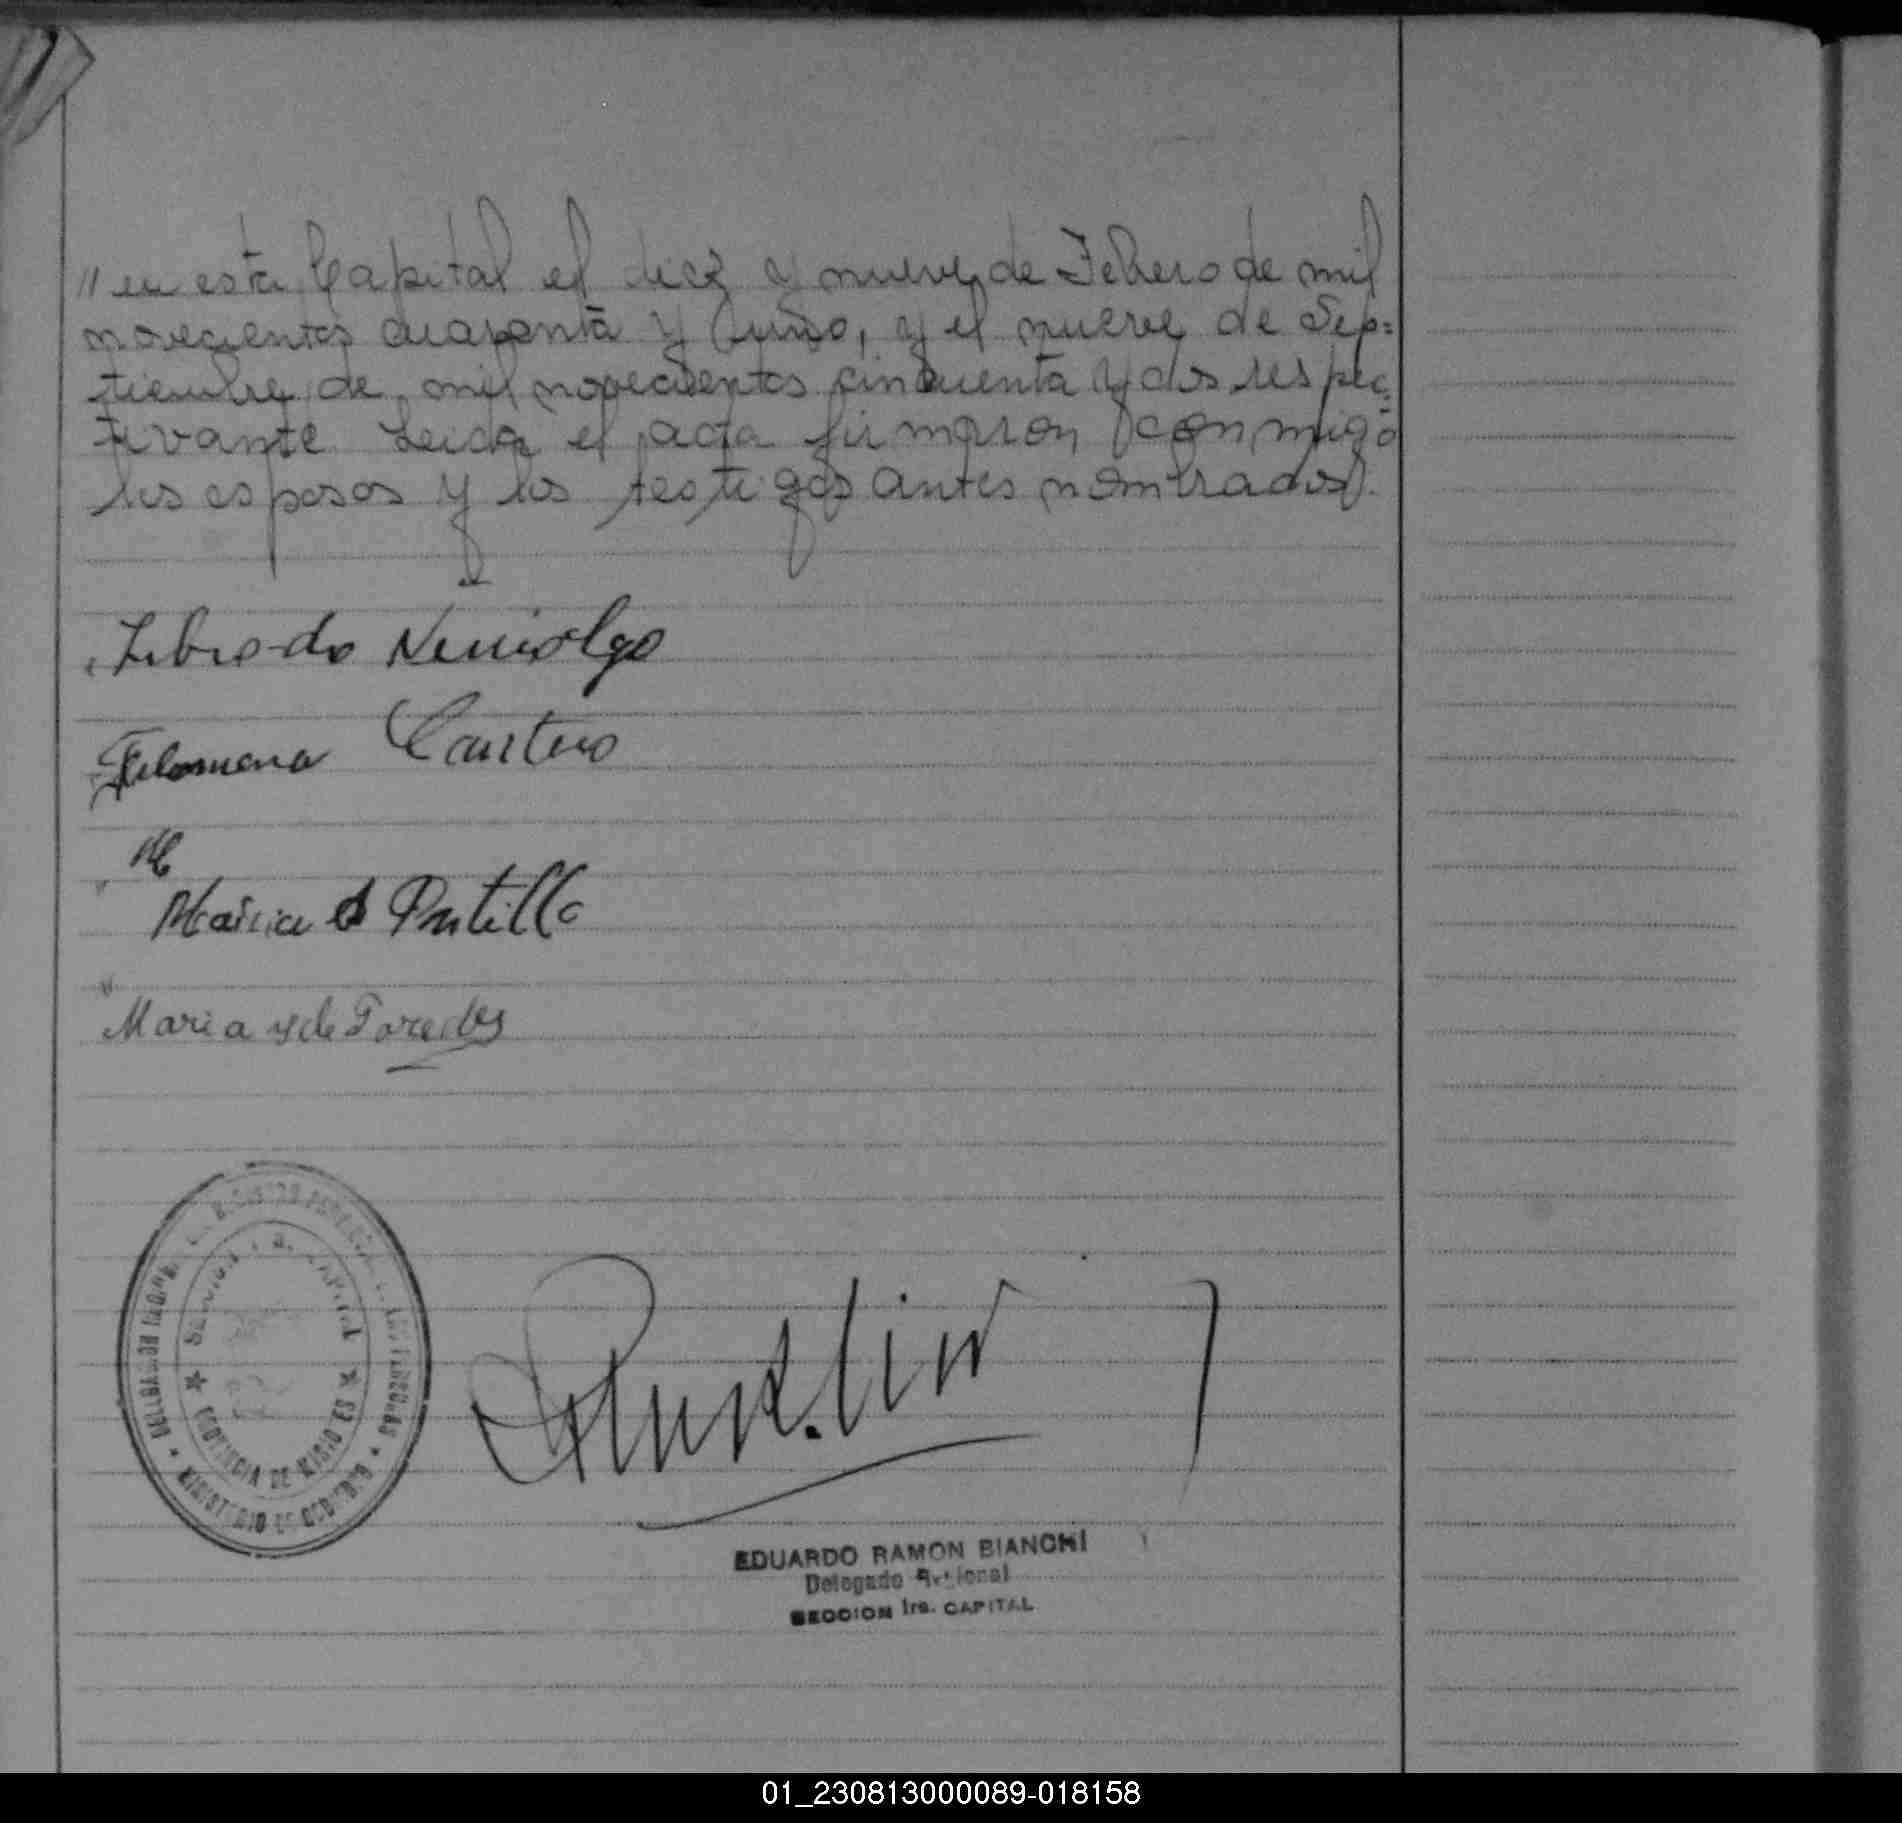 // en esta Capital el diez y nueve de Febrero de mil
novecientos cuarenta y uno, y el nueve de Sep=
tiembre de mil novecientos cincuenta y dos respec=
tivante Leida el acta firmaron conmigo
los esposos y los testigos antes nombrados.
Librado
Filomena Castero
M
Maria Portillo
Maria y de Paredes
SECCION 1a. CAPITAL
PROVINCIA DE MISIONES
MINISTERIO DE GOBIERNO
EDUARDO RAMON BIANCHI
Delegado Regional
SECCION 1ra. CAPITAL
01_230813000089-018158